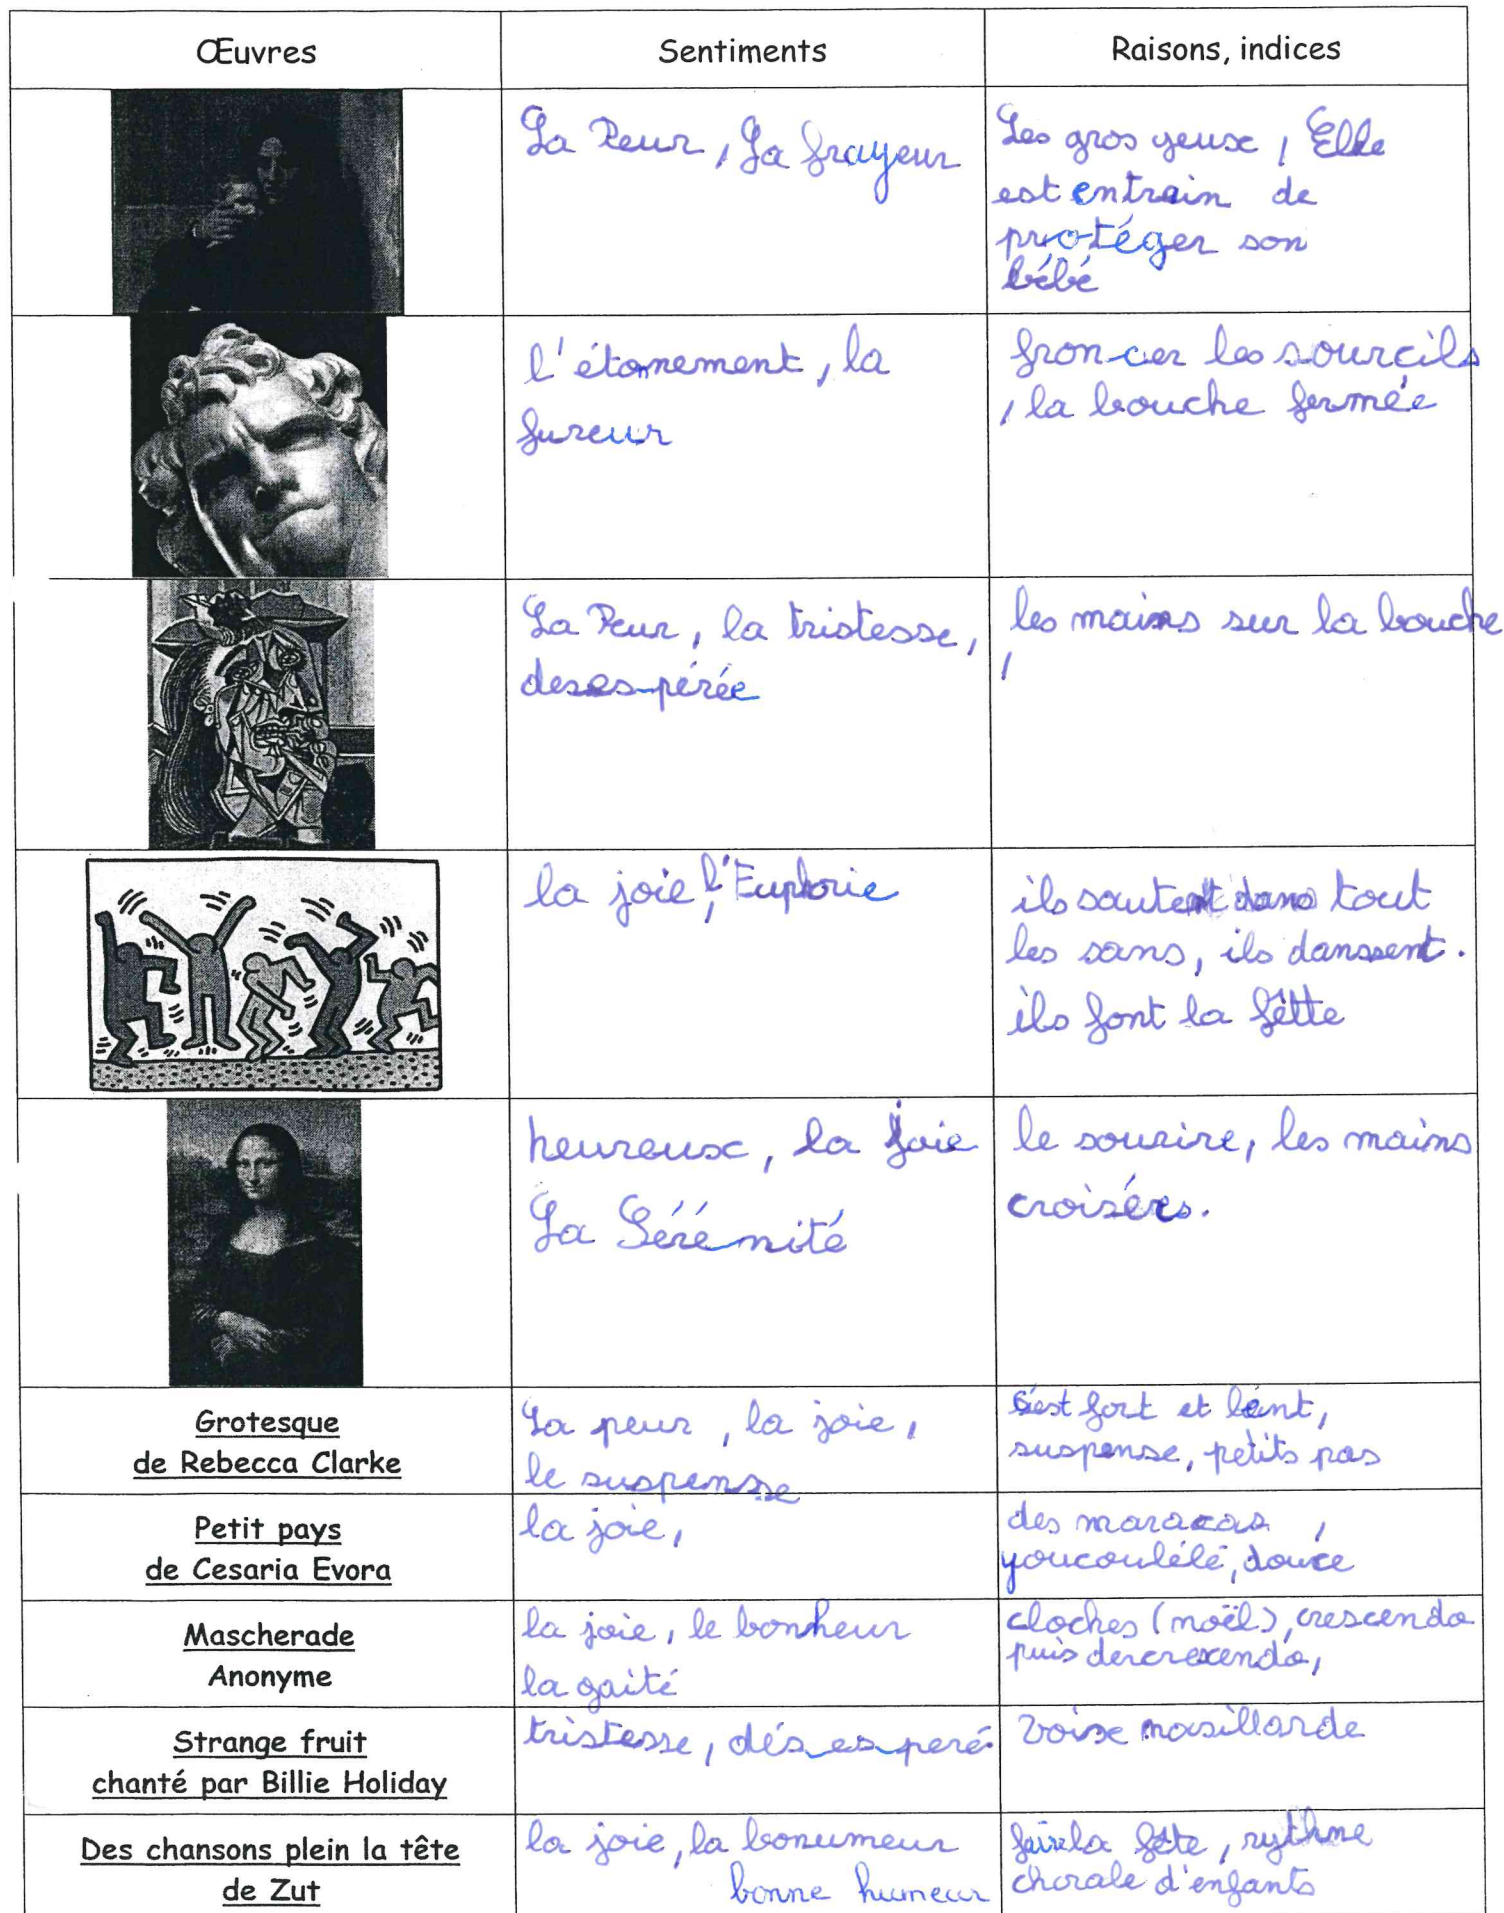 Œuvres
Sentiments
Raisons, indices
La Peur, La frayeur
Les gros yeux, Elle
est entrain de
protéger son
bébé
l'étonnement, la
fureur
froncer les sourcils
, la bouche fermée
La Peur, la tristesse,
desespérée
les mains sur la bouche
,
la joie, l'Euphorie
ils sautent dans tout
les sans, ils danssent.
ils font la fêtte
heureux, la joie
La Sérénité
le sourire, les mains
croisées.
Grotesque
de Rebecca Clarke
La peur, la joie,
le suspensse
c'est fort et lent,
suspense, petits pas
Petit pays
de Cesaria Evora
la joie,
des maracas,
youcoulélé, douce
Mascherade
Anonyme
la joie, le bonheur
la gaité
cloches (noël), crescendo
puis decrexendo,
Strange fruit
chanté par Billie Holiday
tristesse, désesperé
voixe nasillarde
Des chansons plein la tête
de Zut
la joie, la bonumeur
bonne humeur
faire la fête, rythme
chorale d'enfants